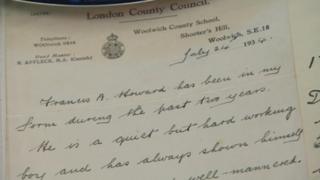 London County Council.
Woolwich County School,
Shooter's Hill,
Woolwich, S.E.18
Telephone:
Head Master
R. AFFLECK, M.A. (Cantab)
July 24 1934.
Francis A. Howard has been in my
form during the past two years.
He is a quiet but hard working
boy and has always shown himself
well mannered.